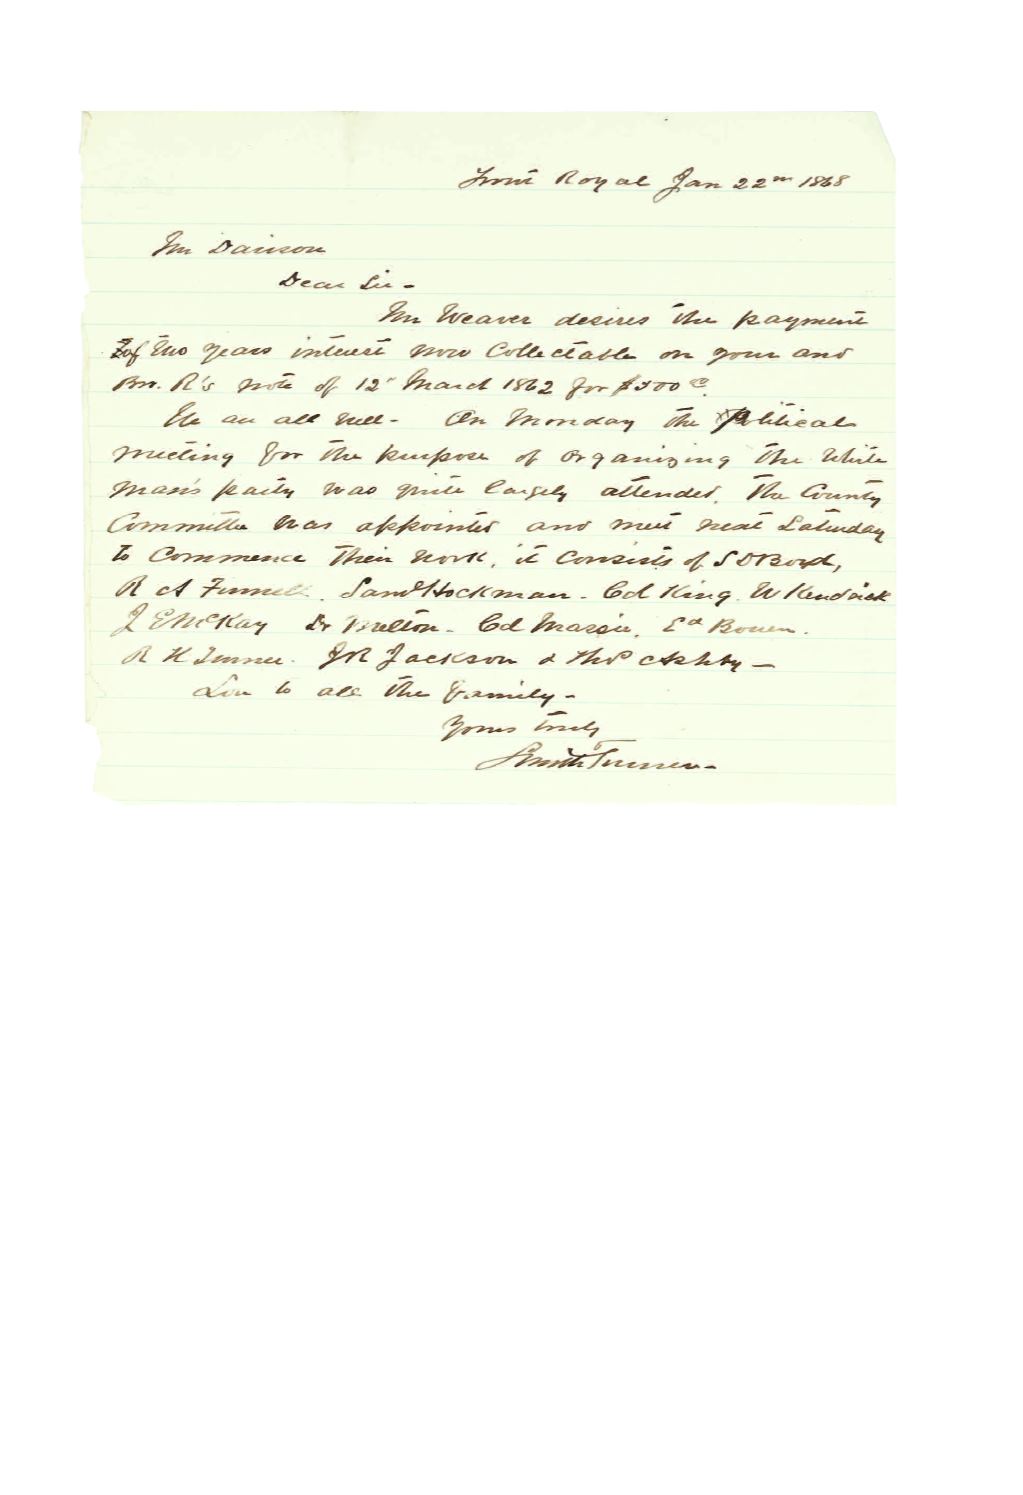 Front Royal Jan 22nd 1868
Mr Davison
Dear Sir -
Mr Weaver desires the payment
of two years interest now Collectable on your and
Bro. R's note of 12" March 1862 for $500
We are all well - On Monday the Political
meeting for the purpose of organizing the White
Man's party was quite largely attended. The County
Committee was appointed and meet next Saturday
to Commence their work, it consists of S D Boyd,
R A Funnell. Saml Hockman - Col King. W Kendrick
J E McKay Dr Melton - Col Massie. Ed Bowen.
R H Turner. J R Jackson & Thos Ashby -
Love to all the Family -
Yours truly
Smith Turner -